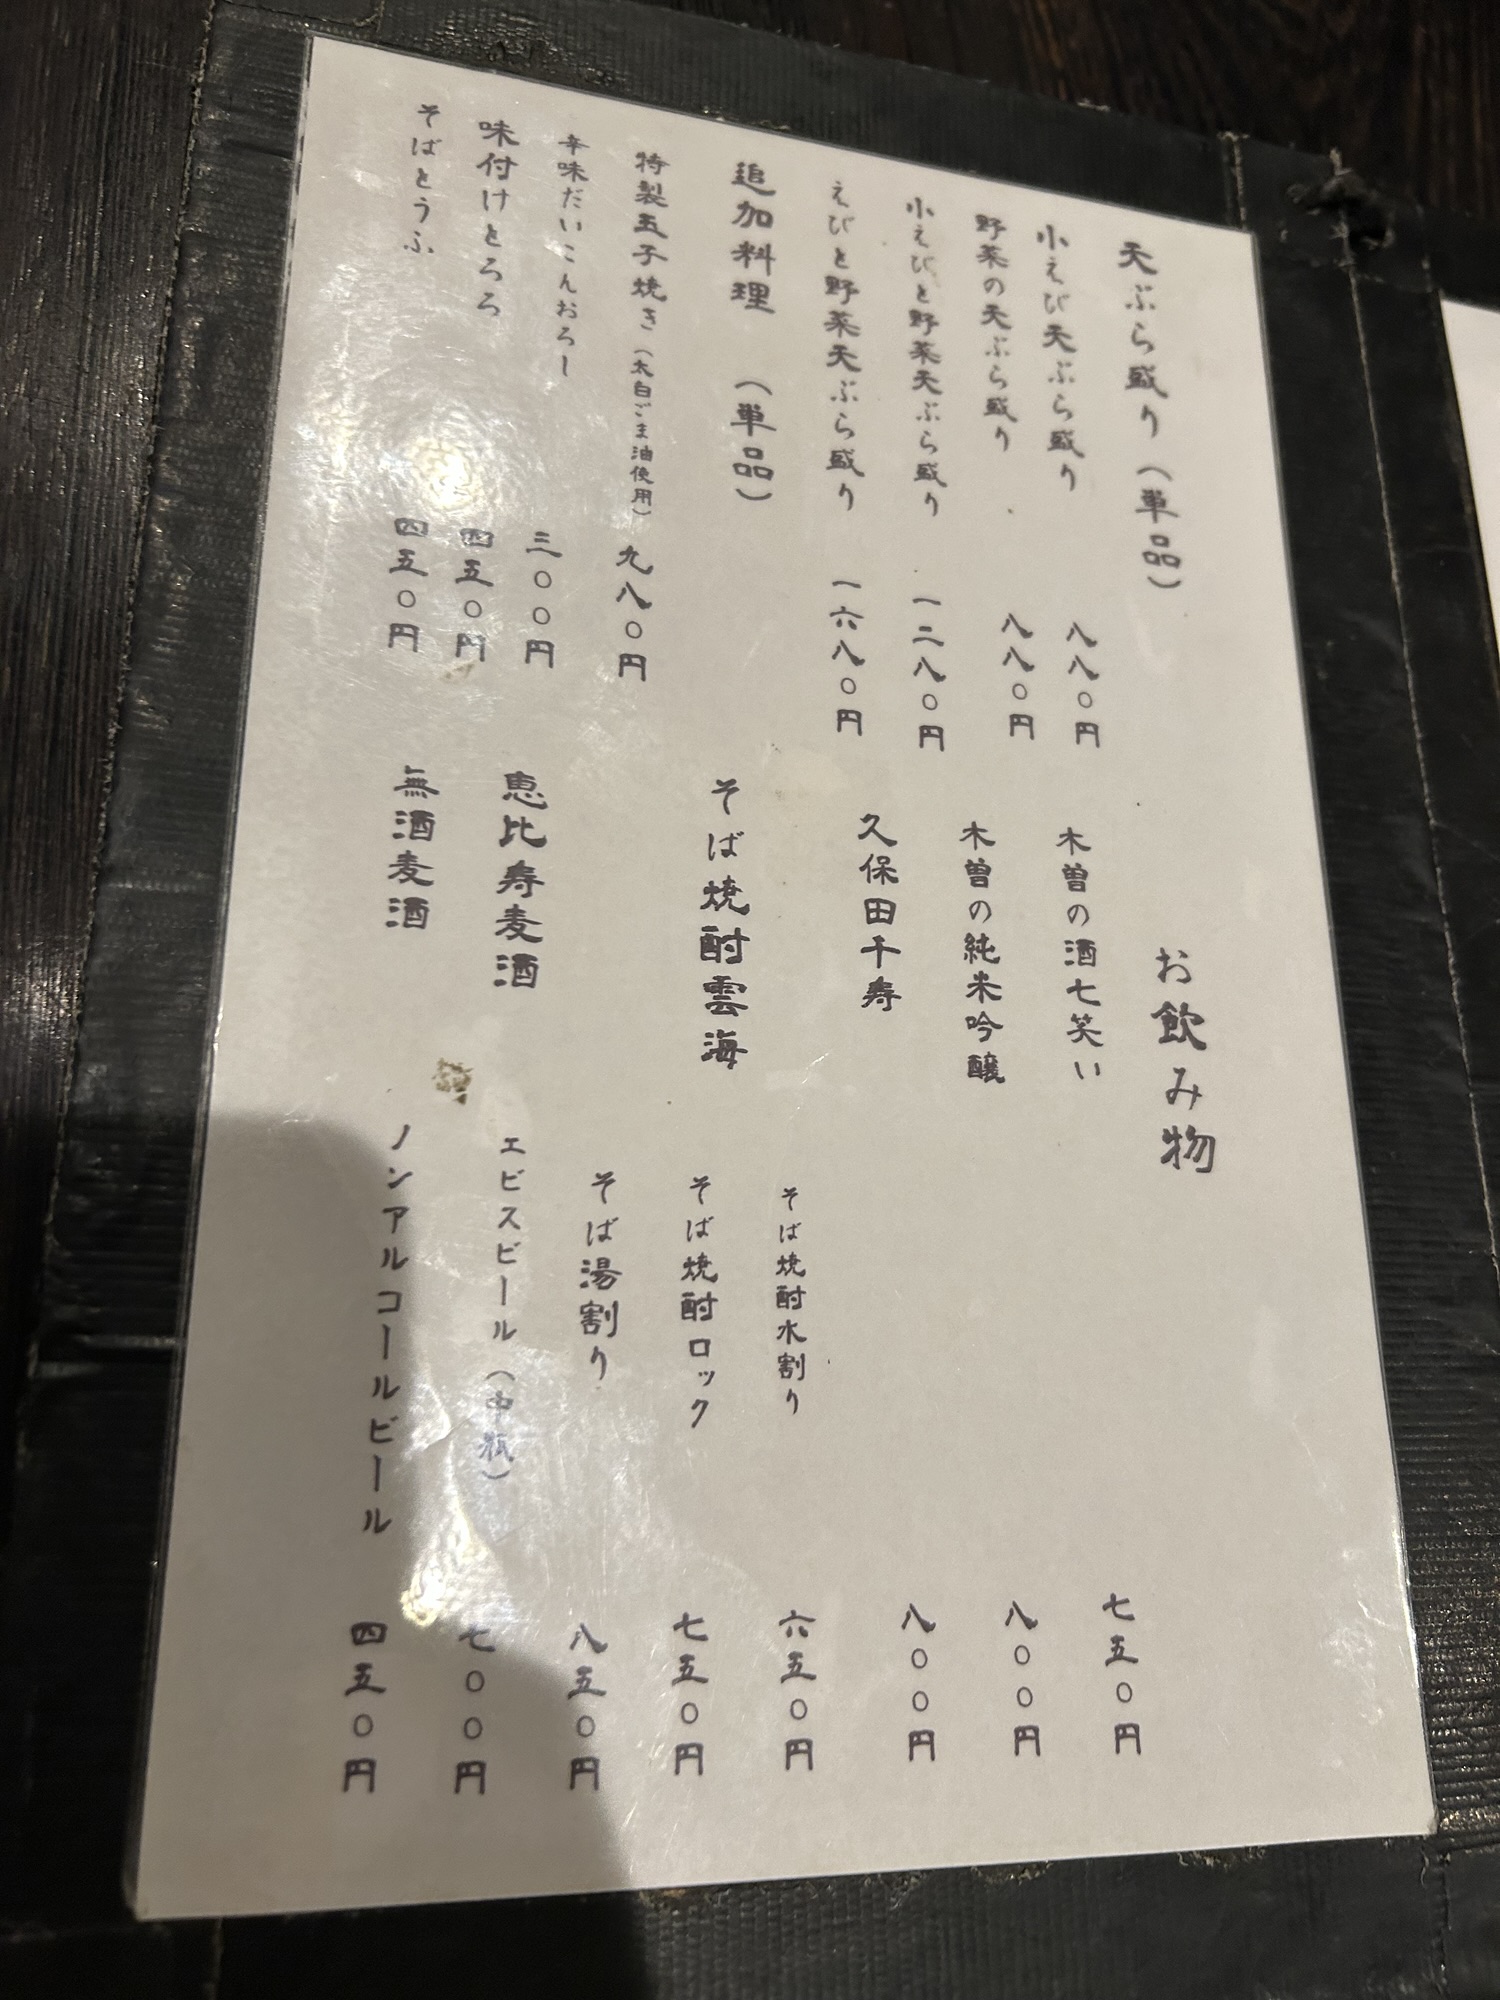 天ぷら盛り（単品）
小えび天ぷら盛り 八八〇円
野菜の天ぷら盛り 八八〇円
小えびと野菜天ぷら盛り 一二八〇円
えびと野菜天ぷら盛り 一六八〇円
追加料理 （単品）
特製玉子焼き（太白ごま油使用） 九八〇円
辛味だいこんおろし 三〇〇円
味付けとろろ 四五〇円
そばとうふ 四五〇円
お飲み物
木曽の酒七笑い 七五〇円
木曽の純米吟醸 八〇〇円
久保田千寿 八〇〇円
そば焼酎水割り 六五〇円
そば焼酎雲海 そば焼酎ロック 七五〇円
そば湯割り 八五〇円
恵比寿麦酒 エビスビール（中瓶） 七〇〇円
無酒麦酒 ノンアルコールビール 四五〇円